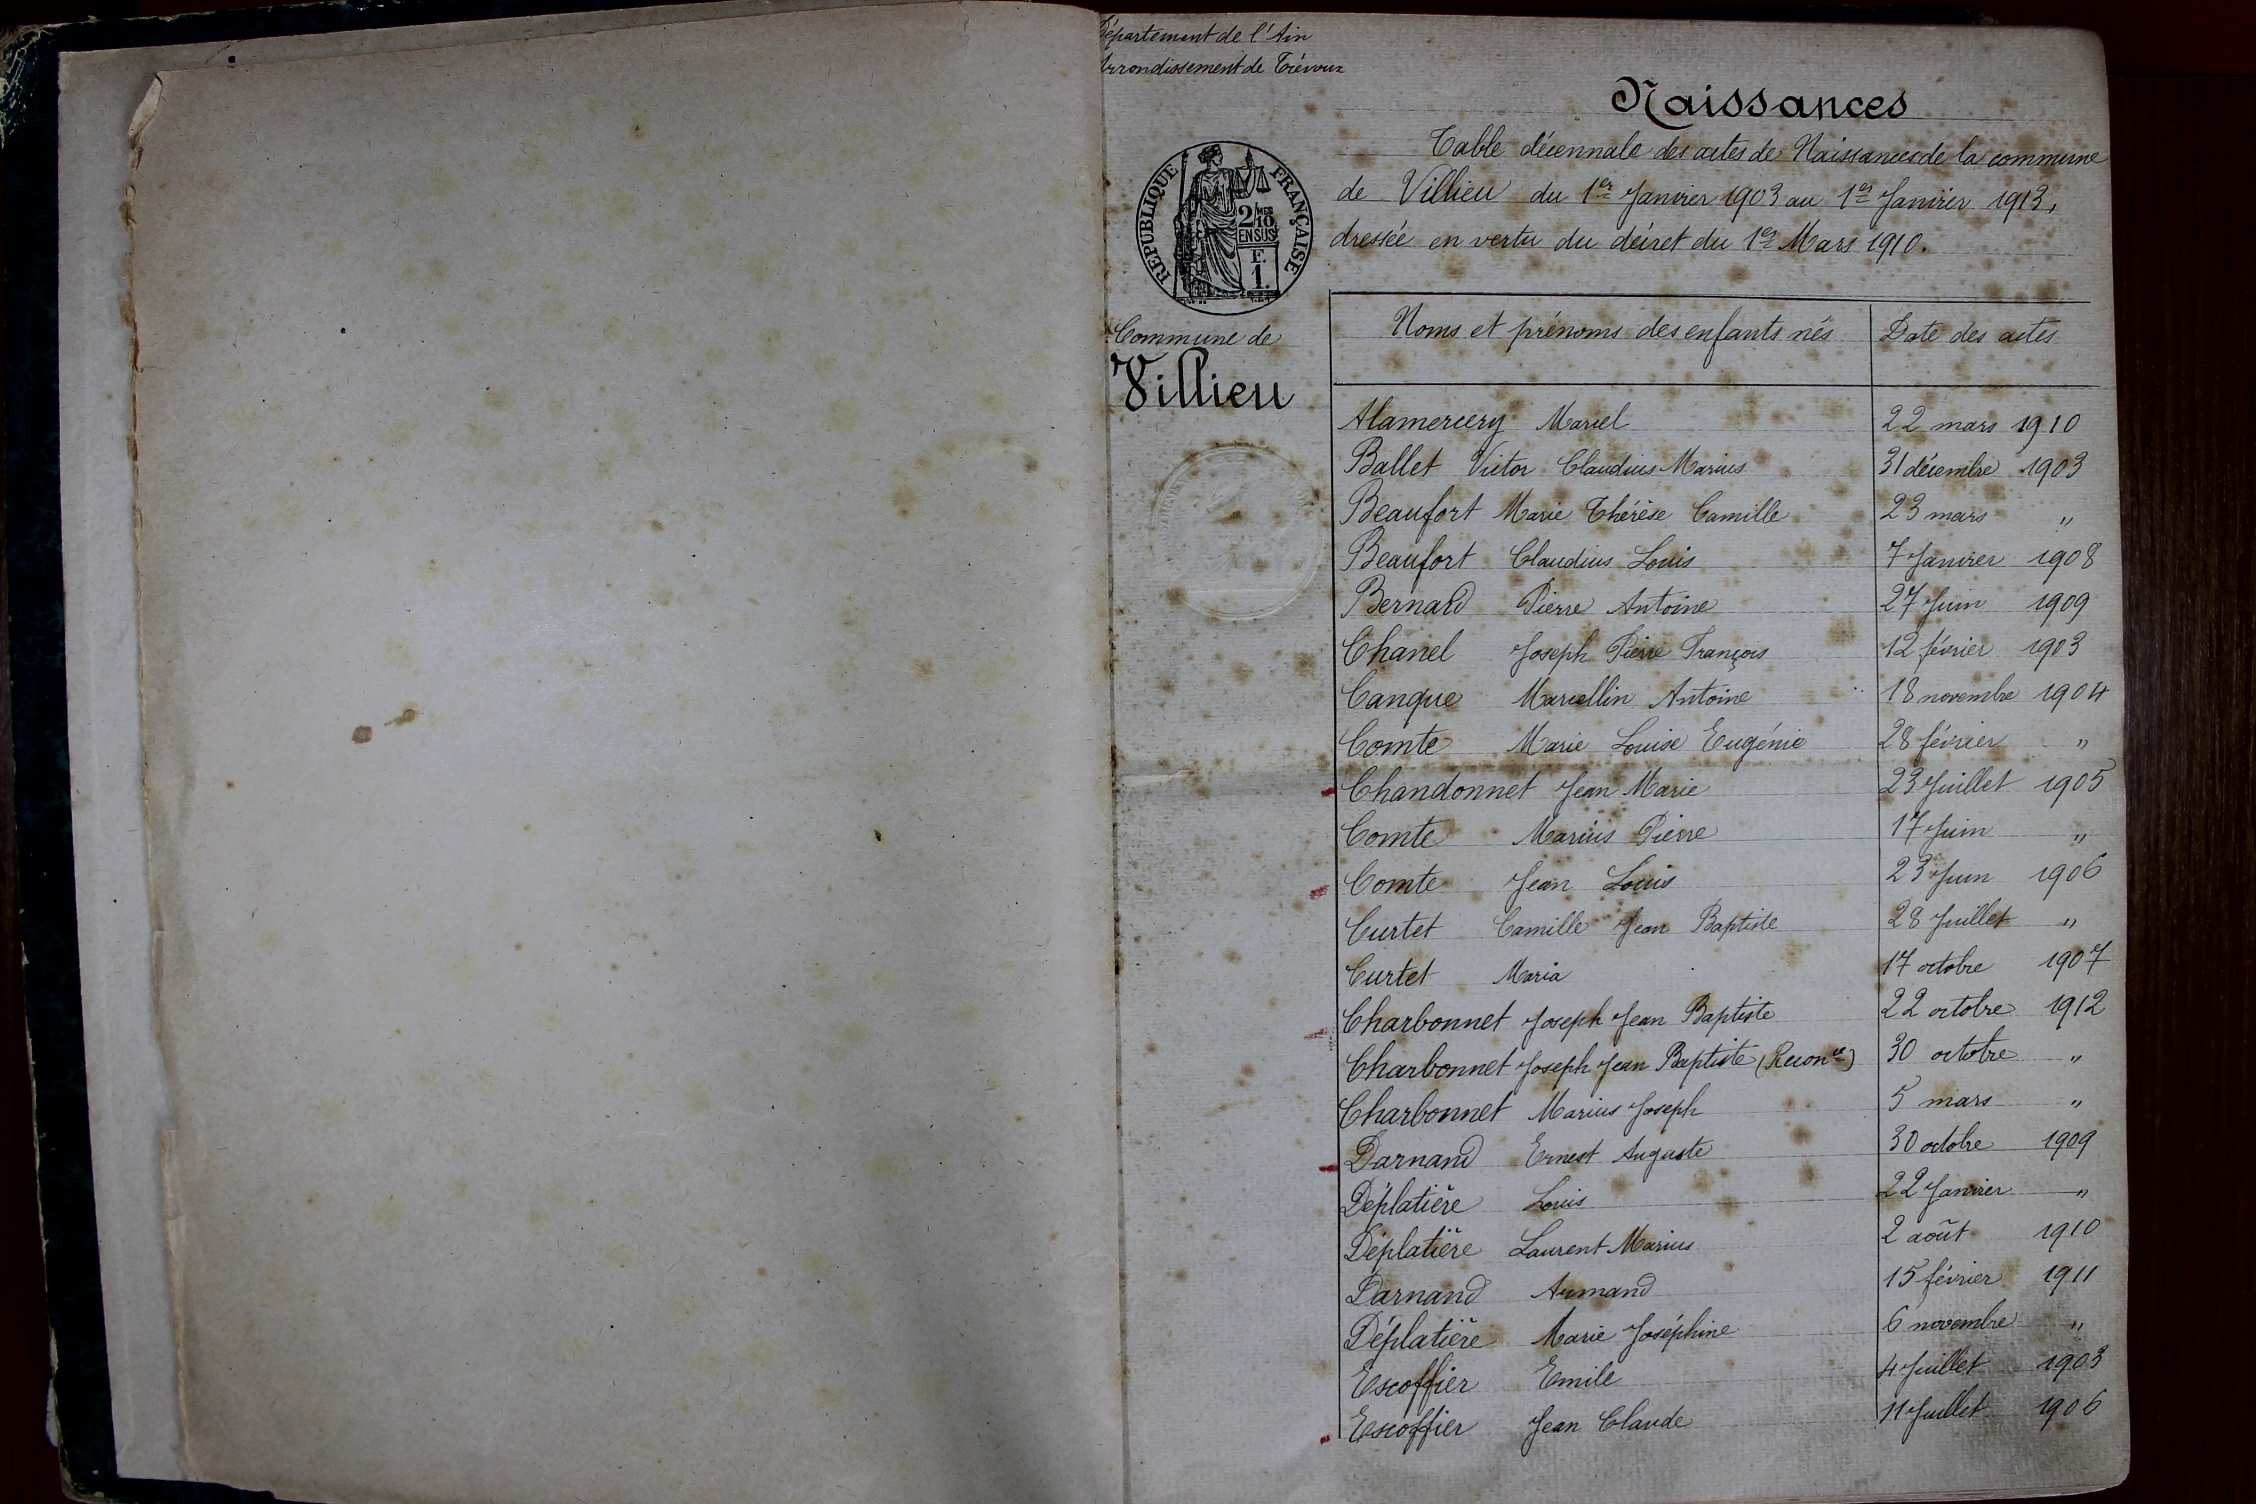 Département de l'Ain
Arrondissement de Trévoux
Naissances
Table décennale des actes de Naissances de la commune
de Villieu du 1er Janvier 1903 au 1er Janvier 1913,
dressée en vertu du décret du 1er Mars 1910.
RÉPUBLIQUE FRANÇAISE
2/10 MES
EN SUS
F.
1.
Commune de
Villieu
Noms et prénoms des enfants nés Date des actes
Alamercery Marcel 22 mars 1910
Ballet Victor Claudius Marius 31 décembre 1903
Beaufort Marie Thérèse Camille 23 mars "
Beaufort Claudius Louis 7 Janvier 1908
Bernard Pierre Antoine 27 Juin 1909
Chanel Joseph Pierre François 12 février 1903
Canque Marcellin Antoine 18 novembre 1904
Comte Marie Louise Eugénie 28 février "
Chandonnet Jean Marie 23 Juillet 1905
Comte Marius Pierre 17 Juin "
Comte Jean Louis 23 Juin 1906
Curtet Camille Jean Baptiste 28 Juillet "
Curtet Maria 17 octobre 1907
Charbonnet Joseph Jean Baptiste 22 octobre 1912
Charbonnet Joseph Jean Baptiste (Reconce) 30 octobre "
Charbonnet Marius Joseph 5 mars "
Darnand Ernest Auguste 30 octobre 1909
Déplatière Louis 22 Janvier "
Déplatière Laurent Marius 2 août 1910
Darnand Armand 15 février 1911
Déplatière Marie Joséphine 6 novembre "
Escoffier Emile 4 Juillet 1903
Escoffier Jean Claude 11 Juillet 1906